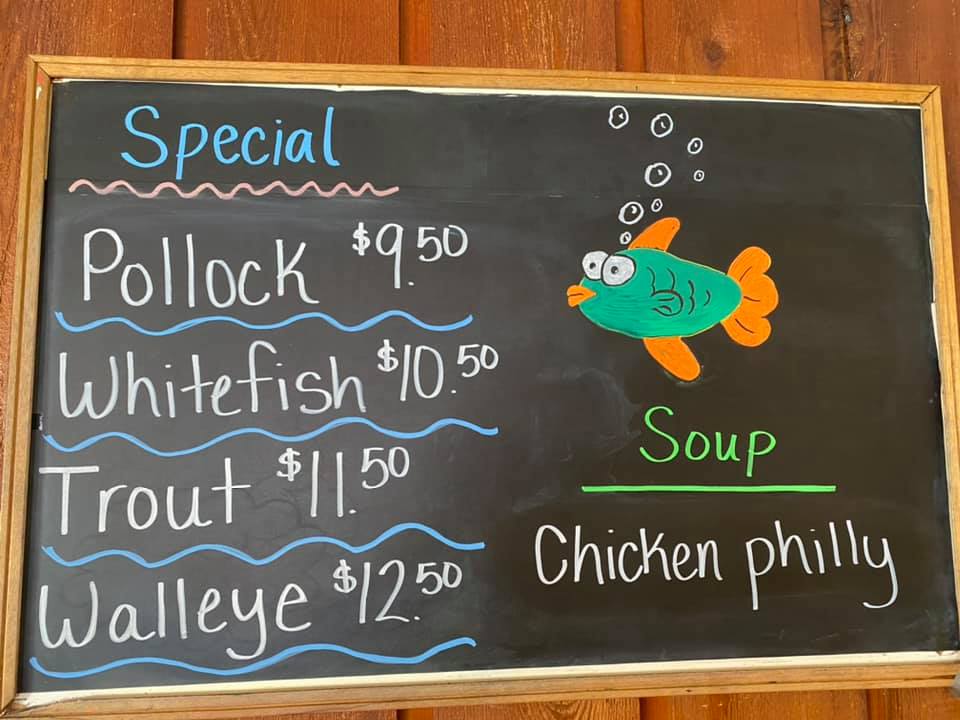 Special
Pollock $9.50
Whitefish $10.50
Trout $11.50
Walleye $12.50
Soup
Chicken philly